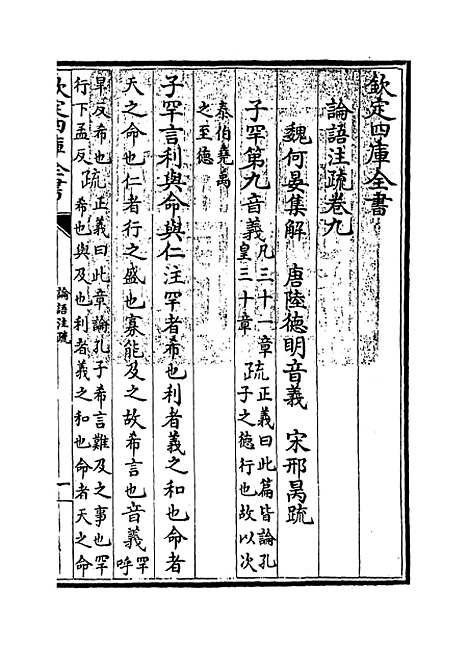 欽定四庫全書
論語注疏卷九
魏何晏集解 唐陸德明音義 宋邢昺疏
子罕第九音義凡三十一章皇三十章疏正義曰此篇皆論孔子之德行也故以次
泰伯堯禹之至德
子罕言利與命與仁注罕者希也利者義之和也命者
天之命也仁者行之盛也寡能及之故希言也音義罕呼
旱反希也行下孟反疏正義曰此章論孔子希言難及之事也罕希也與及也利者義之和也命者天之命
欽定四庫全書
論語注疏
一